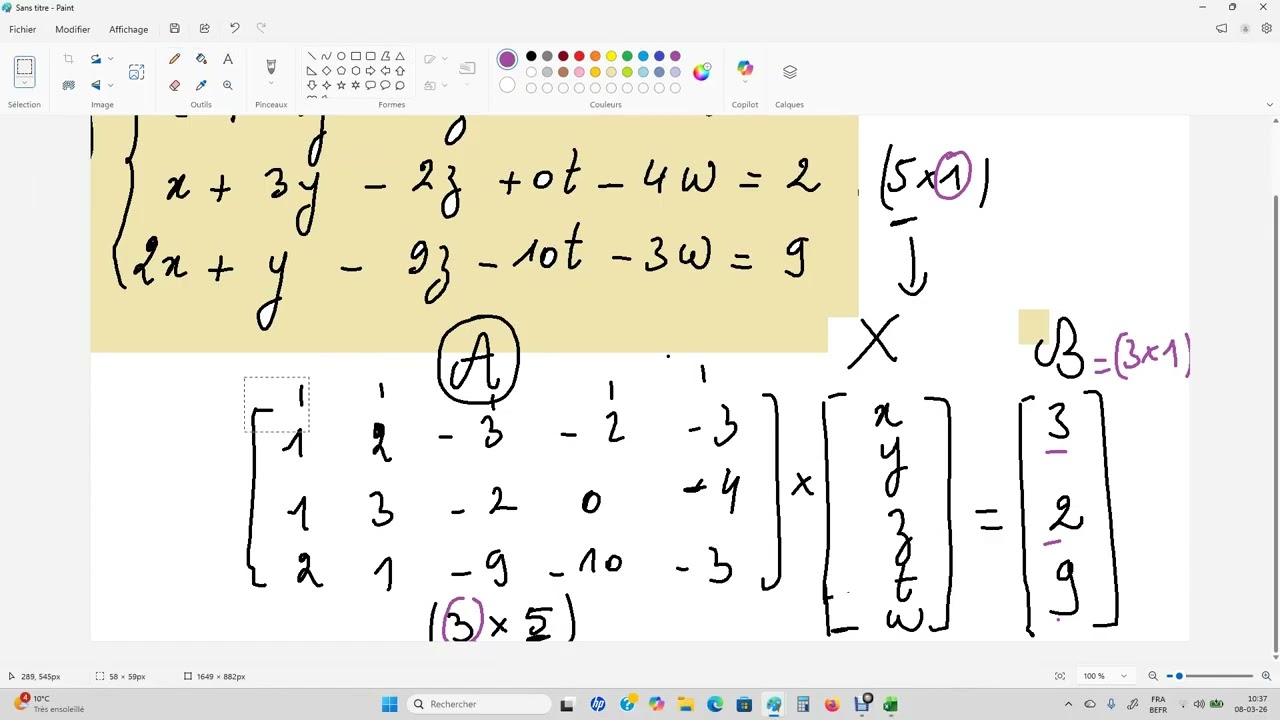 Sans titre - Paint
Fichier Modifier Affichage
Sélection Image Outils Pinceaux Formes Couleurs Copilot Calques
x + 3y - 2z + 0t - 4w = 2
2x + y - 9z - 10t - 3w = 9
(5x1)
A X B = (3x1)
1 2 -3 -2 -3 x = 3
1 3 -2 0 -4 × y z = 2
2 1 -9 -10 -3 t w 9
(3 x 5)
289, 545px 58 × 59px 1649 × 882px 100 %
10°C
Très ensoleillé
Rechercher
FRA
BEPR
10:37
08-03-26